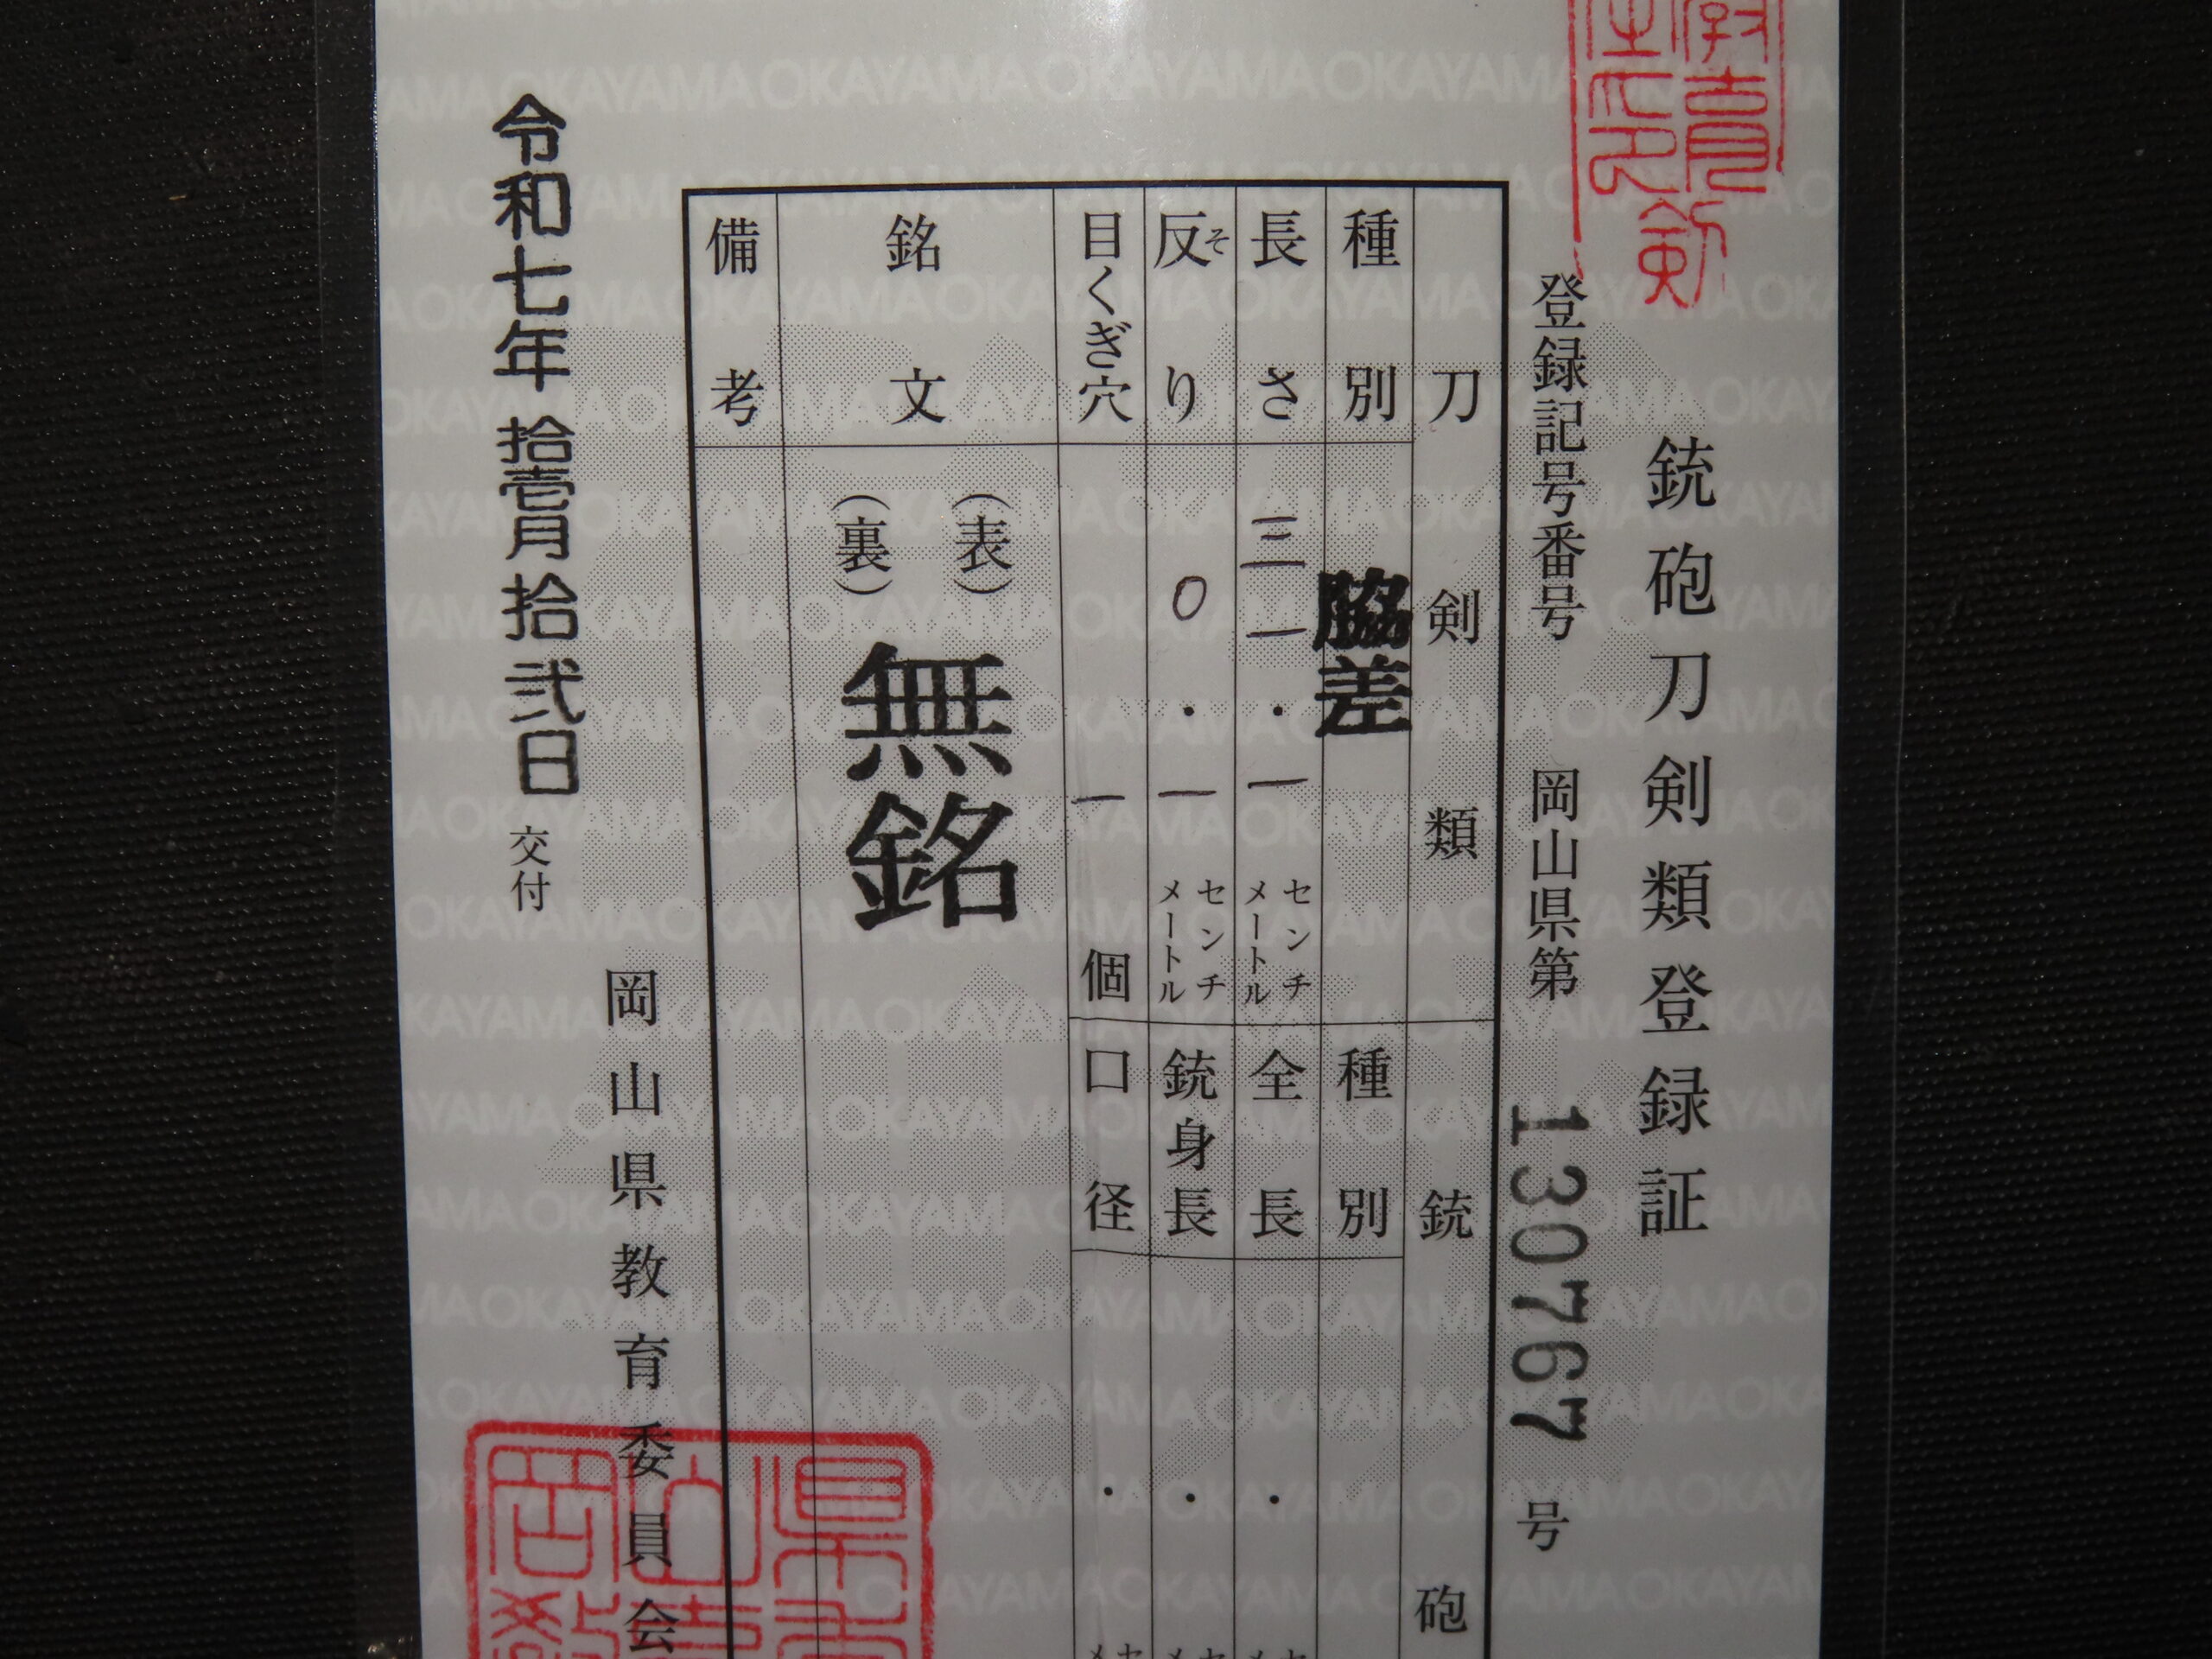 銃砲刀剣類登録証
登録記号番号 岡山県第 130767 号
刀剣類
種別 脇差
長さ 三一・一 センチメートル
反り そ 〇・一 センチメートル
目くぎ穴 一 個
銘文 (表) (裏) 無銘
備考
銃砲
種別
全長 ・
銃身長 ・
口径 ・
令和七年拾壱月拾弐日 交付
岡山県教育委員会
OKAYAMA